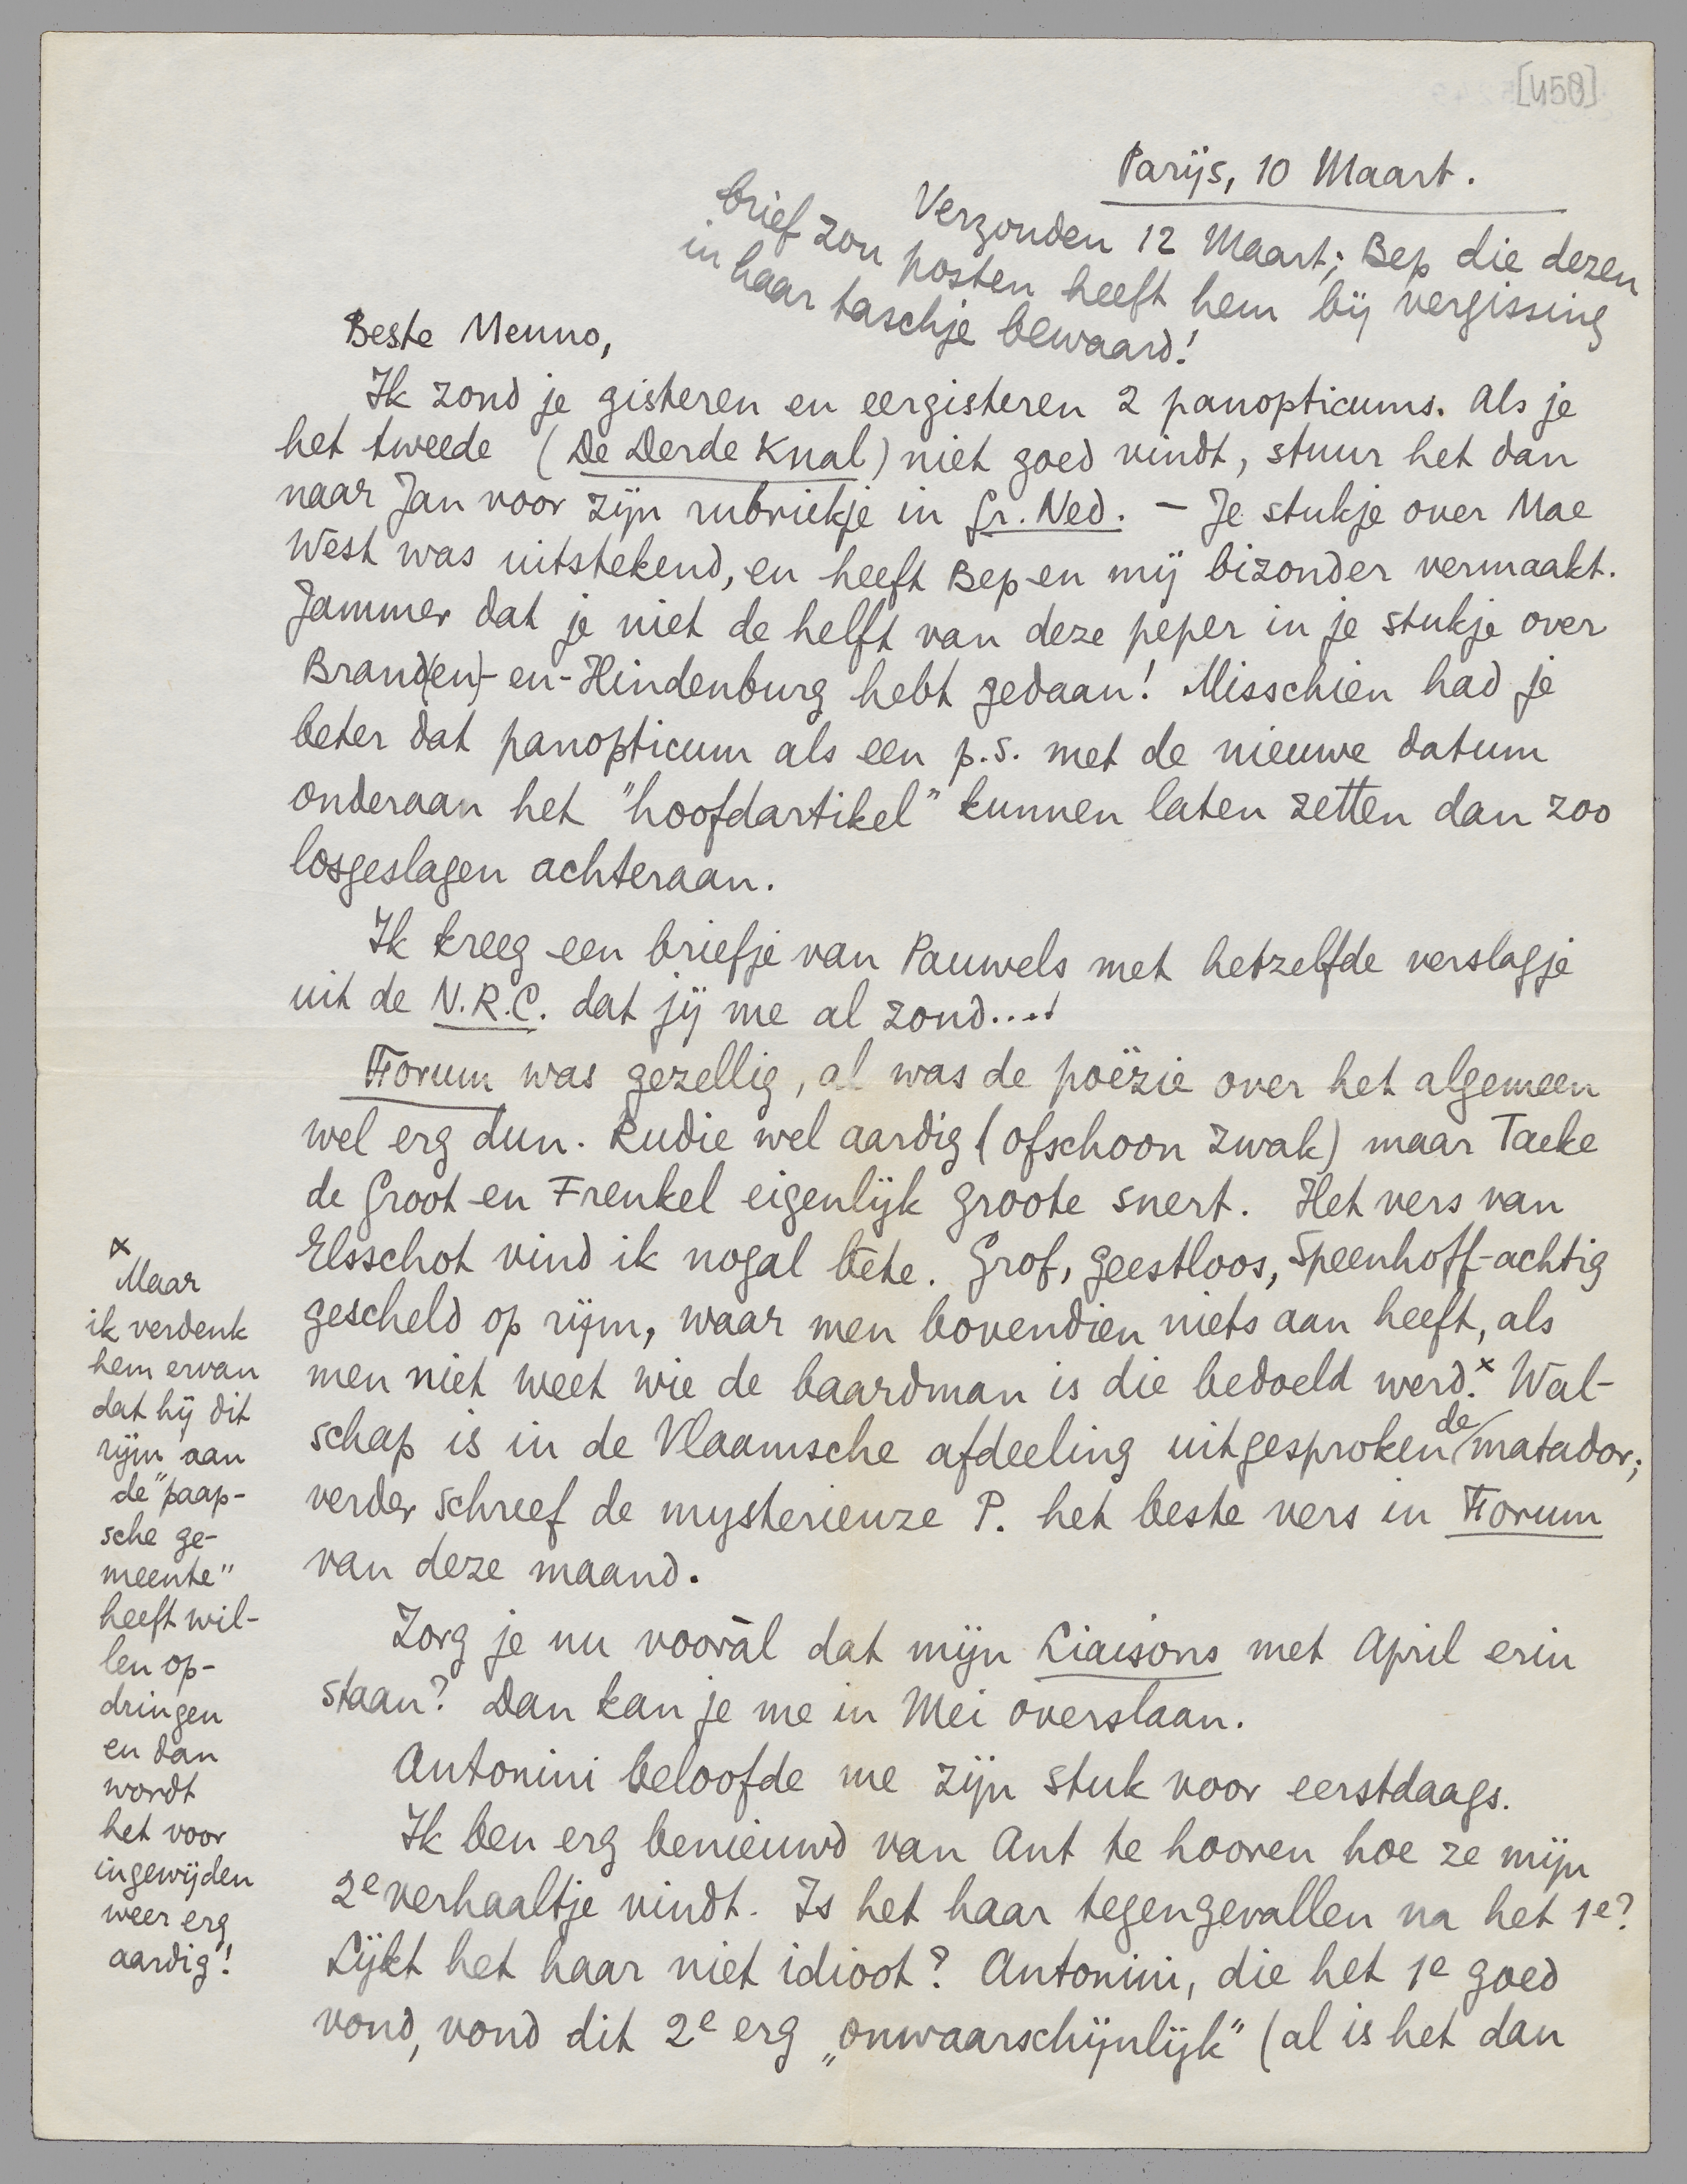 [458]
Parijs, 10 Maart.
Verzonden 12 Maart; Bep die dezen
brief zou posten heeft hem bij vergissing
in haar taschje bewaard!
Beste Menno,
Ik zond je gisteren en eergisteren 2 panopticums. Als je
het tweede (De Derde Knal) niet goed vindt, stuur het dan
naar Jan voor zijn rubriekje in Gr. Ned. – Je stukje over Mae
West was uitstekend, en heeft Bep en mij bizonder vermaakt.
Jammer dat je niet de helft van deze peper in je stukje over
Brand(en)-en-Hindenburg hebt gedaan! Misschien had je
beter dat panopticum als een p.s. met de nieuwe datum
onderaan het "hoofdartikel" kunnen laten zetten dan zoo
losgeslagen achteraan.
Ik kreeg een briefje van Pauwels met hetzelfde verslagje
uit de N.R.C. dat jij me al zond....!
Forum was gezellig, al was de poëzie over het algemeen
wel erg dun. Rudie wel aardig (ofschoon zwak) maar Taeke
de Groot en Frenkel eigenlijk groote snert. Het vers van
Elsschot vind ik nogal bête. Grof, geestloos, Speenhoff-achtig
gescheld op rijm, waar men bovendien niets aan heeft, als
men niet weet wie de baardman is die bedoeld werd.x Wal-
schap is in de Vlaamsche afdeeling uitgesproken de matador;
verder schreef de mysterieuze P. het beste vers in Forum
van deze maand.
Zorg je nu vooràl dat mijn Liaisons met April erin
staan? Dan kan je me in Mei overslaan.
Antonini beloofde me zijn stuk voor eerstdaags.
Ik ben erg benieuwd van Ant te hooren hoe ze mijn
2e verhaaltje vindt. Is het haar tegengevallen na het 1e?
Lijkt het haar niet idioot? Antonini, die het 1e goed
vond, vond dit 2e erg „onwaarschijnlijk" (al is het dan
x
Maar
ik verdenk
hem ervan
dat hij dit
rijm aan
de "paap-
sche ge-
meente"
heeft wil-
len op-
dringen
en dan
wordt
het voor
ingewijden
weer erg
aardig!